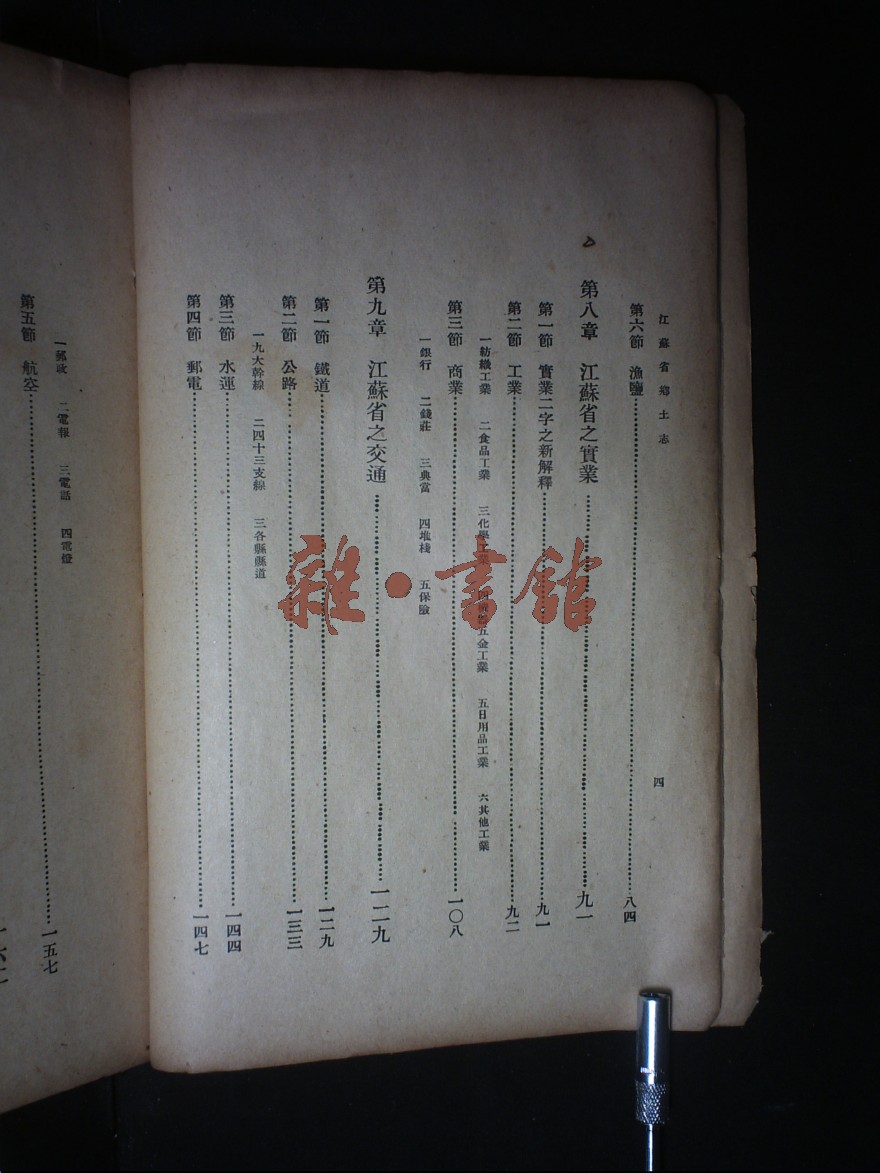 江蘇省鄉土志 四
第六節 漁鹽 八四
第八章 江蘇省之實業 九一
第一節 實業二字之新解釋 九一
第二節 工業 九二
一紡織工業 二食品工業 三化學工業 五金工業 五日用品工業 六其他工業
第三節 商業 一〇八
一銀行 二錢莊 三典當 四堆棧 五保險
第九章 江蘇省之交通 一一九
第一節 鐵道 一二九
第二節 公路 一三三
一九大幹線 二四十三支線 三各縣縣道
第三節 水運 一四四
第四節 郵電 一四七
一郵政 二電報 三電話 四電燈
第五節 航空 一五七
雜·書館